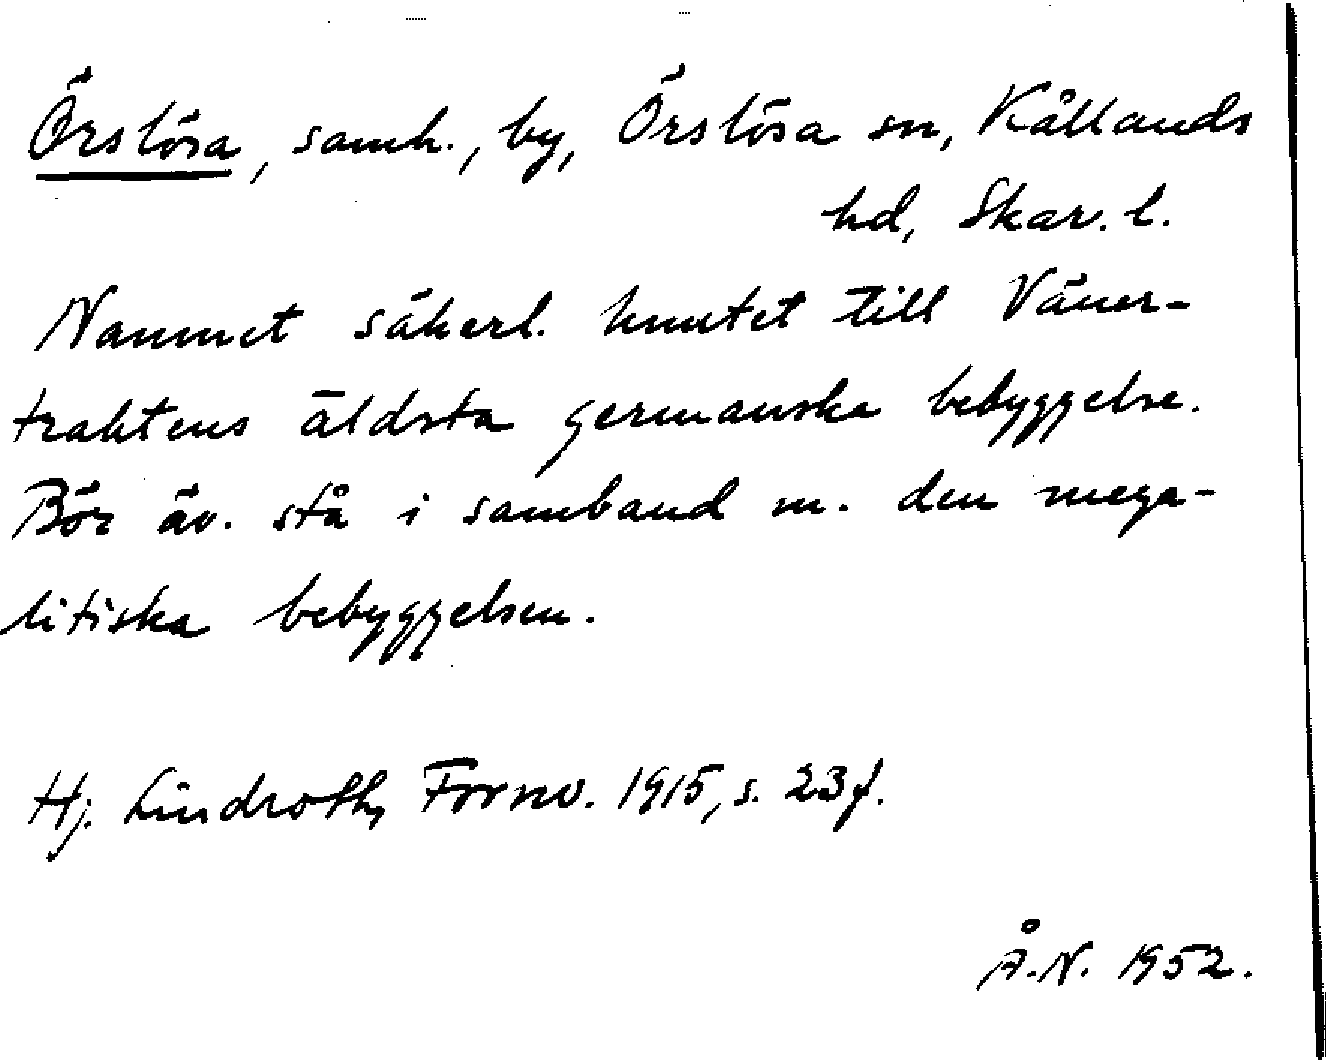 Örslösa, samh., by, Örslösa sn, Kållands
hd, Skar. l.
Namnet säkerl. knutet till Väner-
traktens äldsta germanska bebyggelse.
Bör äv. stå i samband m. den mega-
litiska bebyggelsen.
Hj. Lindroth, Fornv. 1915, s. 23 f.
Å.N. 1952.